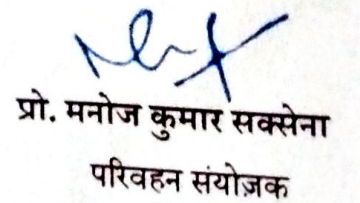 प्रो. मनोज कुमार सक्सेना
परिवहन संयोज़क